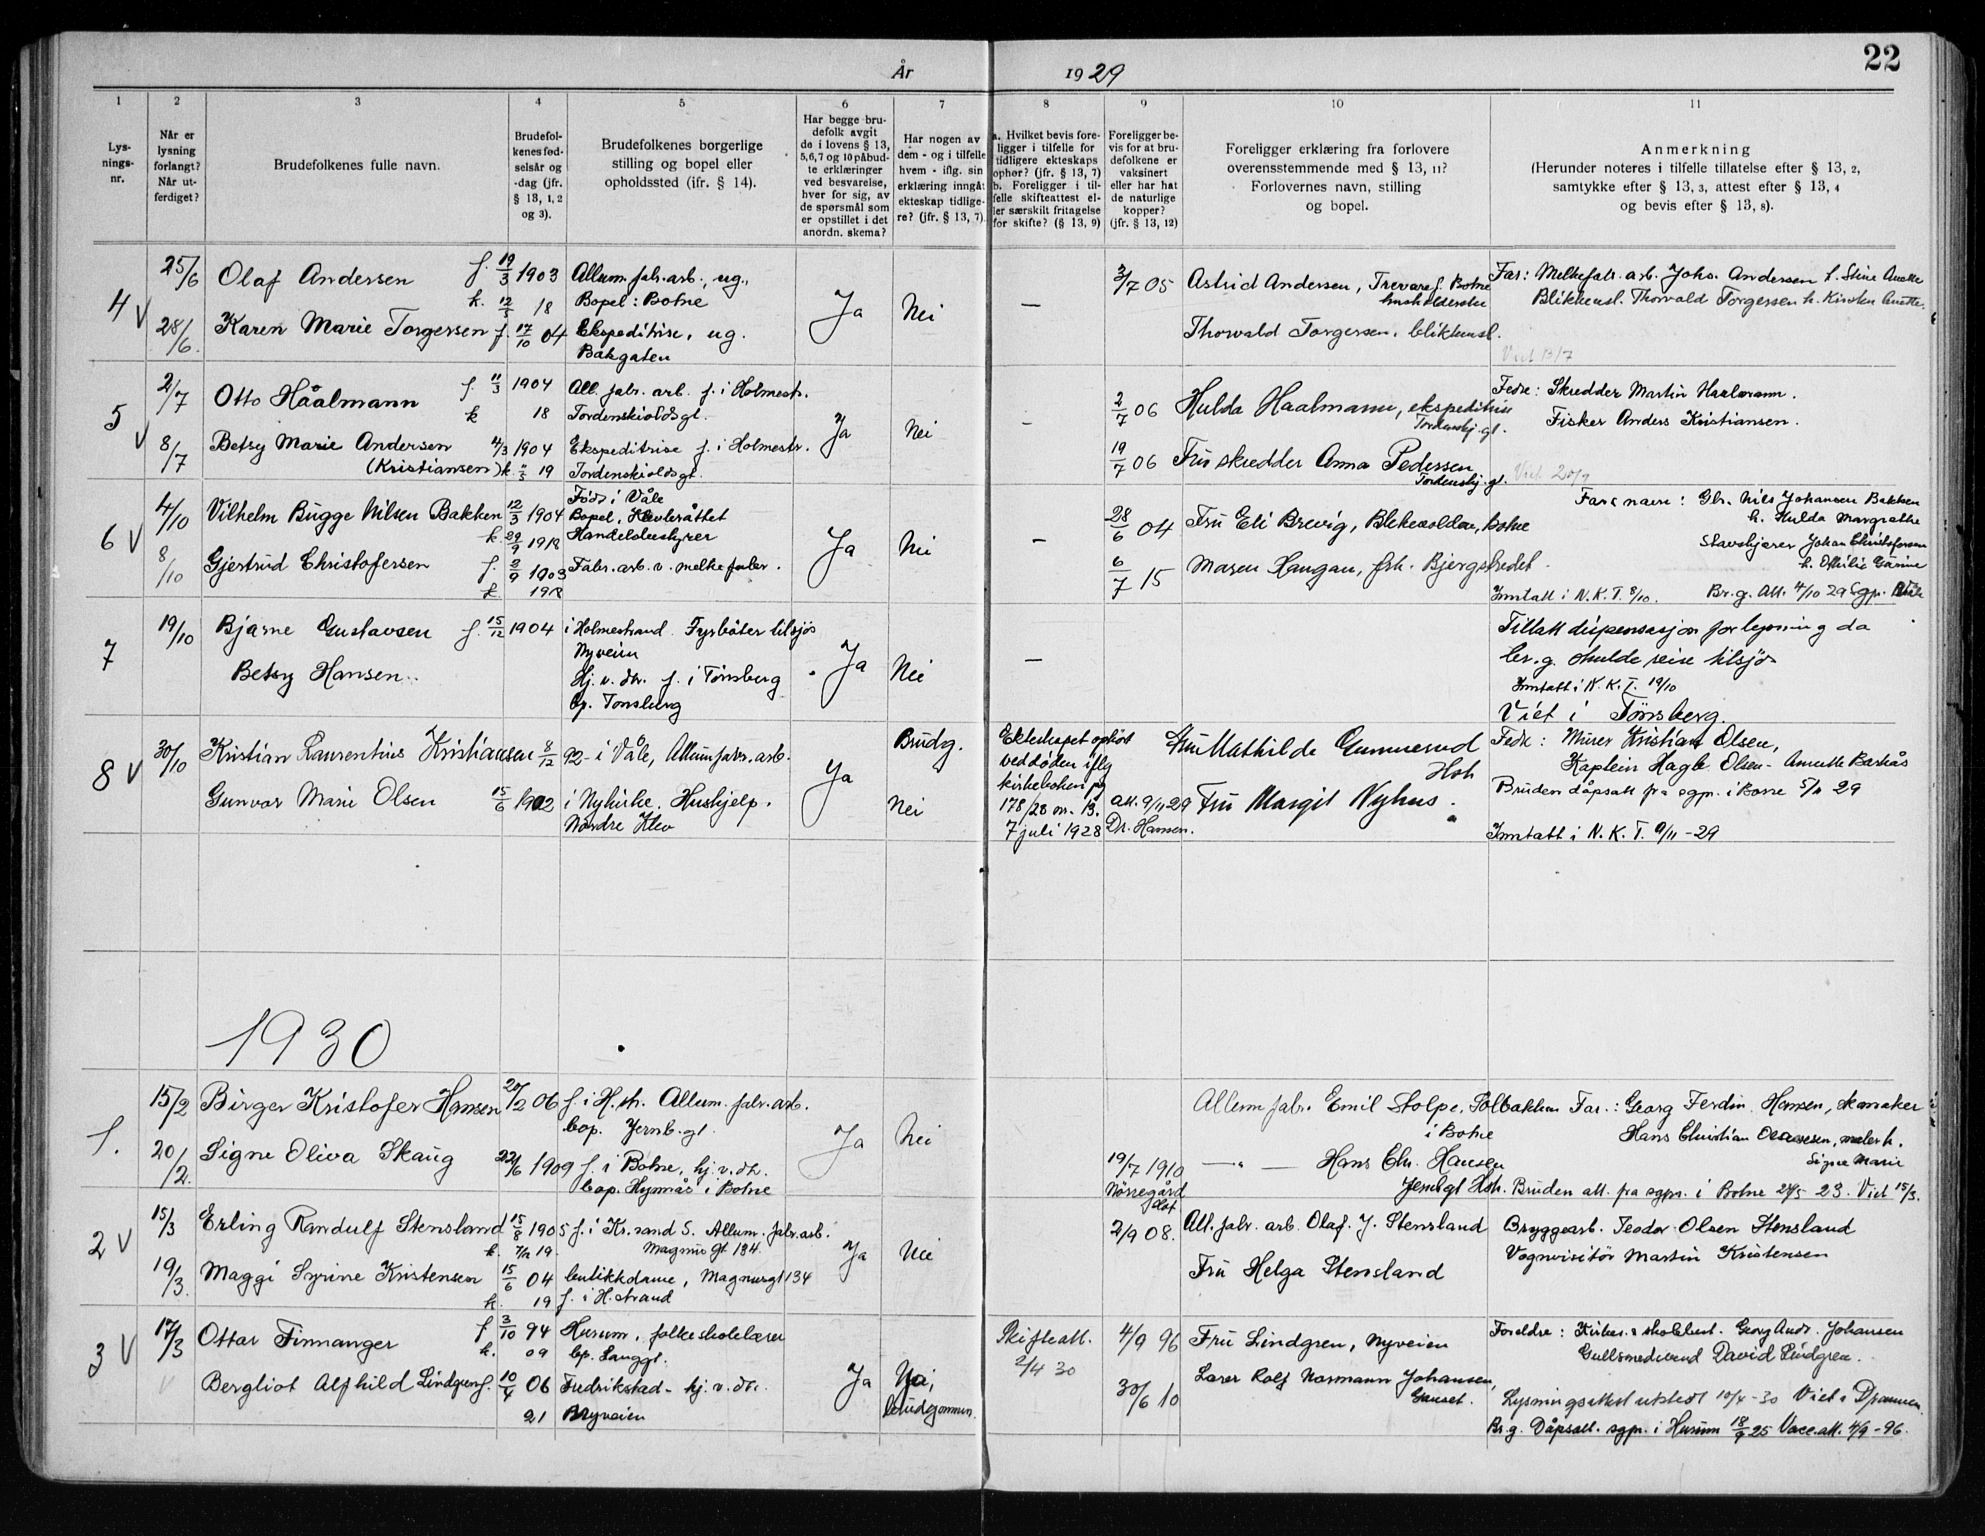 22
År 1929
1 2 3 4 5 6 7 8 9 10 11
Lysnings-nr.
Når er lysning forlangt? Når utferdiget?
Brudefolkenes fulle navn.
Brudefolkenes fødselsår og -dag (jfr. § 13, 1, 2 og 3).
Brudefolkenes borgerlige stilling og bopel eller opholdssted (ifr. § 14).
Har begge brudefolk avgit de i lovens § 13, 5,6,7 og 10 påbudte erklæringer ved besvarelse, hver for sig, av de spørsmål som er opstillet i det anordn. skema?
Har nogen av dem - og i tilfelle hvem - iflg. sin erklæring inngåt ekteskap tidligere? (jfr. § 13, 7).
a. Hvilket bevis foreligger i tilfelle for tidligere ekteskaps ophør? (jfr. § 13, 7) b. Foreligger i tilfelle skifteattest eller særskilt fritagelse for skifte? (§ 13, 9)
Foreligger bevis for at brudefolkene er vaksinert eller har hat de naturlige kopper? (jfr. § 13, 12)
Foreligger erklæring fra forlovere overensstemmende med § 13, 11? Forlovernes navn, stilling og bopel.
Anmerkning (Herunder noteres i tilfelle tillatelse efter § 13, 2, samtykke efter § 13, 3, attest efter § 13, 4 og bevis efter § 13, 8).
4 V 25/6 Olaf Andersen f. 19/3 1903 Allum. fabr. arb., ug.
k. 18 Bopel: Botne
28/6. Karen Marie Torgersen f. 17/10 04 Ekspeditrise, ug.
Bakgaten
Ja Nei —
3/7 05 Astrid Andersen, Botne
Thorvald Torgersen, blikkensl.
Far: Melkefabr. arb. Johs. Andersen h. Stine
Blikkensl. Thorvald Torgersen h. Kirsten Anette.
Viet 13/7
5 V 2/7 Otto Håalmann f. 11/3 1904 All. fabr. arb. f. i Holmestr.
k 18 Tordenskiolds gt.
8/7 Betsy Marie Andersen 4/3 1904 Ekspeditrise f. i Holmestr.
(Kristiansen) k. 19 Tordenskiolds gt.
Ja Nei -
2/7 06 Hulda Haalmann, ekspeditrise
Tordenskj. gt.
19/7 06 Fru skredder Anna Pedersen
Tordenskj. gt.
Fedre: Skredder Martin Haalmann.
Fisker Anders Kristiansen.
Viet 20/7
6 V 4/10 Vilhelm Bugge Nilsen Bakken 12/3 1904 Født i Våle
Bopel,
k. 29/9 1918 Handelsbestyrer
8/10 Gjertrud Christofersen f. 2/9 1903 Fabr. arb. v. melkefabr.
k. 1918
Ja Nei —
28/6 04 Fru Eli Brevig, Botne
6/7 15 Maren Haugan,
Fars navn: Gbr. Nils Johansen Bakken
h. Hulda Margrethe
Johan Christofersen
Inntatt i N. K. T. 8/10. Br.g. Att. 4/10 29 Sgp.
7 19/10 Bjarne Gustavsen f. 15/12 1904 i Holmestrand. Fyrbøter tilsjøs
Nyveien
Betsy Hansen Hj. v. dr. f. i Tønsberg
bp. Tønsberg
Ja Nei —
Tillatt dispensasjon for lysning da
br. g. skulde reise tilsjøs
Inntatt i N. K. T. 19/10
Viet i Tönsberg.
8 V 30/10 Kristian Laurentius Kristiansen 8/12 92 - i Våle, Allum fabr. arb.
Gunvor Marie Olsen 15/6 1902 i Nykirke. Hushjelp.
Nordre Klev
Ja Brudg.
Nei
Ekteskapet ophørt
ved døden iflg
kirkeboken pg
178/28 nr. 13.
7 juli 1928
Att. 9/11 29
Dr. Hansen.
Fru Mathilde Gunnerud
Hst
Fru Margit Nyhus.
Fedre: Murer Kristian Olsen,
Kaptein Hagb Olsen -
Bruden dåpsatt fra sgpr. i Borre 5/11 29
Inntatt i N. K. T. 9/11 - 29
1930
1. 15/2 Birger Kristofer Hansen 20/2 06 f. i H. str. Allum. fabr. arb.
bop. Jernb. gt.
20/2. Signe Oliva Skaug 22/6 1909 f. i Botne, hj. v. dr.
bop. i Botne
Ja Nei
19/7 1910
Allum fabr. Emil Stolpe, Solbakken
i Botne
—"— Hans Chr. Hansen
Jernbgt Hstr.
Far.: Georg Ferdin. Hansen, skomaker
Hans Christian maler h.
Signe Marie
Bruden att. fra sgpr. i Botne 23. Viet 15/3.
2 V 15/3 Erling Randulf Stensland 15/8 1905 f. i Kr. sand S. Allum. fabr. arb.
k. 19. Magnus gt 134.
19/3. Maggi Syrine Kristensen 15/6 04 butikkdame, Magnusgt 134
k. 19 f. i H. strand
Ja Nei
2/9 08. All. fabr. arb. Olaf. J. Stensland
Fru Helga Stensland
Bryggearb. Teodor Olsen Stensland
Vognvisitör Martin Kristensen
3 V 17/3 Ottar Finnanger f 3/10 94 Hurum, folkeskolelærer
k. 09 bp. Langgt.
Bergliot Alfhild Lindgren f. 10/4 06 Fredrikstad - hj. v. dr.
21 Nyveien
Ja Nei,
brudgommen.
Skifteatt.
2/4 30
4/9 96 Fru Lindgren, Nyveien
30/6 10 Lærer Rolf Normann Johansen,
Foreldre: Georg Andr. Johansen
Gullsmedsvend David Lindgren.
Lysningsattest utstedt 10/4 - 30 Viet i Drammen.
Br. g. Dåpsatt. sgpr. i Hurum 18/9 25 Vacc. att. 4/9 - 96.